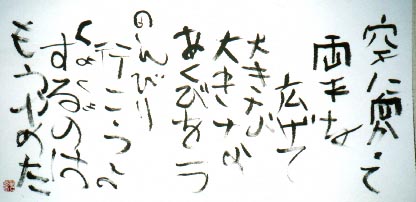 空に
両手を
広げて
大きな
大きな
あくびを一つ
のんびり
行こう
くよくよ
するのは
もうやめた